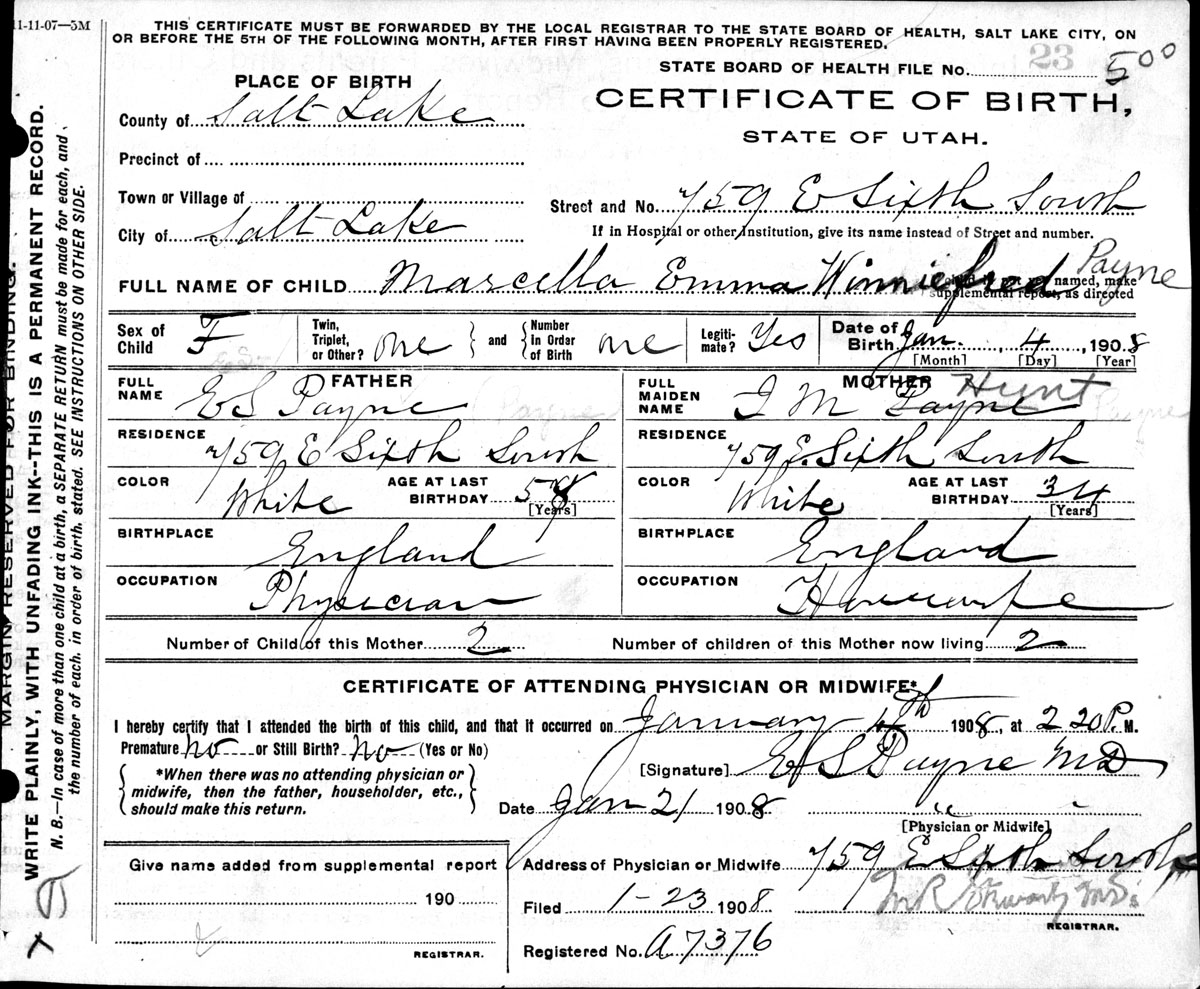 11-11-07—3M
THIS CERTIFICATE MUST BE FORWARDED BY THE LOCAL REGISTRAR TO THE STATE BOARD OF HEALTH, SALT LAKE CITY, ON
OR BEFORE THE 5TH OF THE FOLLOWING MONTH, AFTER FIRST HAVING BEEN PROPERLY REGISTERED.
STATE BOARD OF HEALTH FILE No. 23 500
PLACE OF BIRTH
CERTIFICATE OF BIRTH,
STATE OF UTAH.
County of Salt Lake
Precinct of
Town or Village of
Street and No. 759 E Sixth South
City of Salt Lake
If in Hospital or other Institution, give its name instead of Street and number.
FULL NAME OF CHILD Marcella Emma Winniefred Payne
named, make
supplemental report, as directed
Sex of Child F
Twin, Triplet, or Other? one and Number In Order of Birth one
Legiti-mate? Yes
Date of Birth Jan. 4, 1908
[Month] [Day] [Year]
FATHER
FULL NAME E S Payne
RESIDENCE 759 E Sixth South
COLOR White AGE AT LAST BIRTHDAY 58
[Years]
BIRTHPLACE England
OCCUPATION Physician
MOTHER
FULL MAIDEN NAME I M Payne Hunt
Payne
RESIDENCE 759 E. Sixth South
COLOR White AGE AT LAST BIRTHDAY 34
[Years]
BIRTHPLACE England
OCCUPATION Housewife
Number of Child of this Mother 2 Number of children of this Mother now living 2
CERTIFICATE OF ATTENDING PHYSICIAN OR MIDWIFE*
I hereby certify that I attended the birth of this child, and that it occurred on January 4th 1908, at 2 20 P. M.
Premature no or Still Birth? No (Yes or No)
*When there was no attending physician or
midwife, then the father, householder, etc.,
should make this return.
[Signature] E S Payne MD
Date Jan 21 1908 " "
[Physician or Midwife]
Give name added from supplemental report
190
REGISTRAR.
Address of Physician or Midwife 759 E Sixth South
Filed 1-23 1908
REGISTRAR.
Registered No. A7376
MARGIN RESERVED FOR BINDING.
WRITE PLAINLY, WITH UNFADING INK--THIS IS A PERMANENT RECORD.
N. B.—In case of more than one child at a birth, a SEPARATE RETURN must be made for each, and
the number of each, in order of birth, stated. SEE INSTRUCTIONS ON OTHER SIDE.